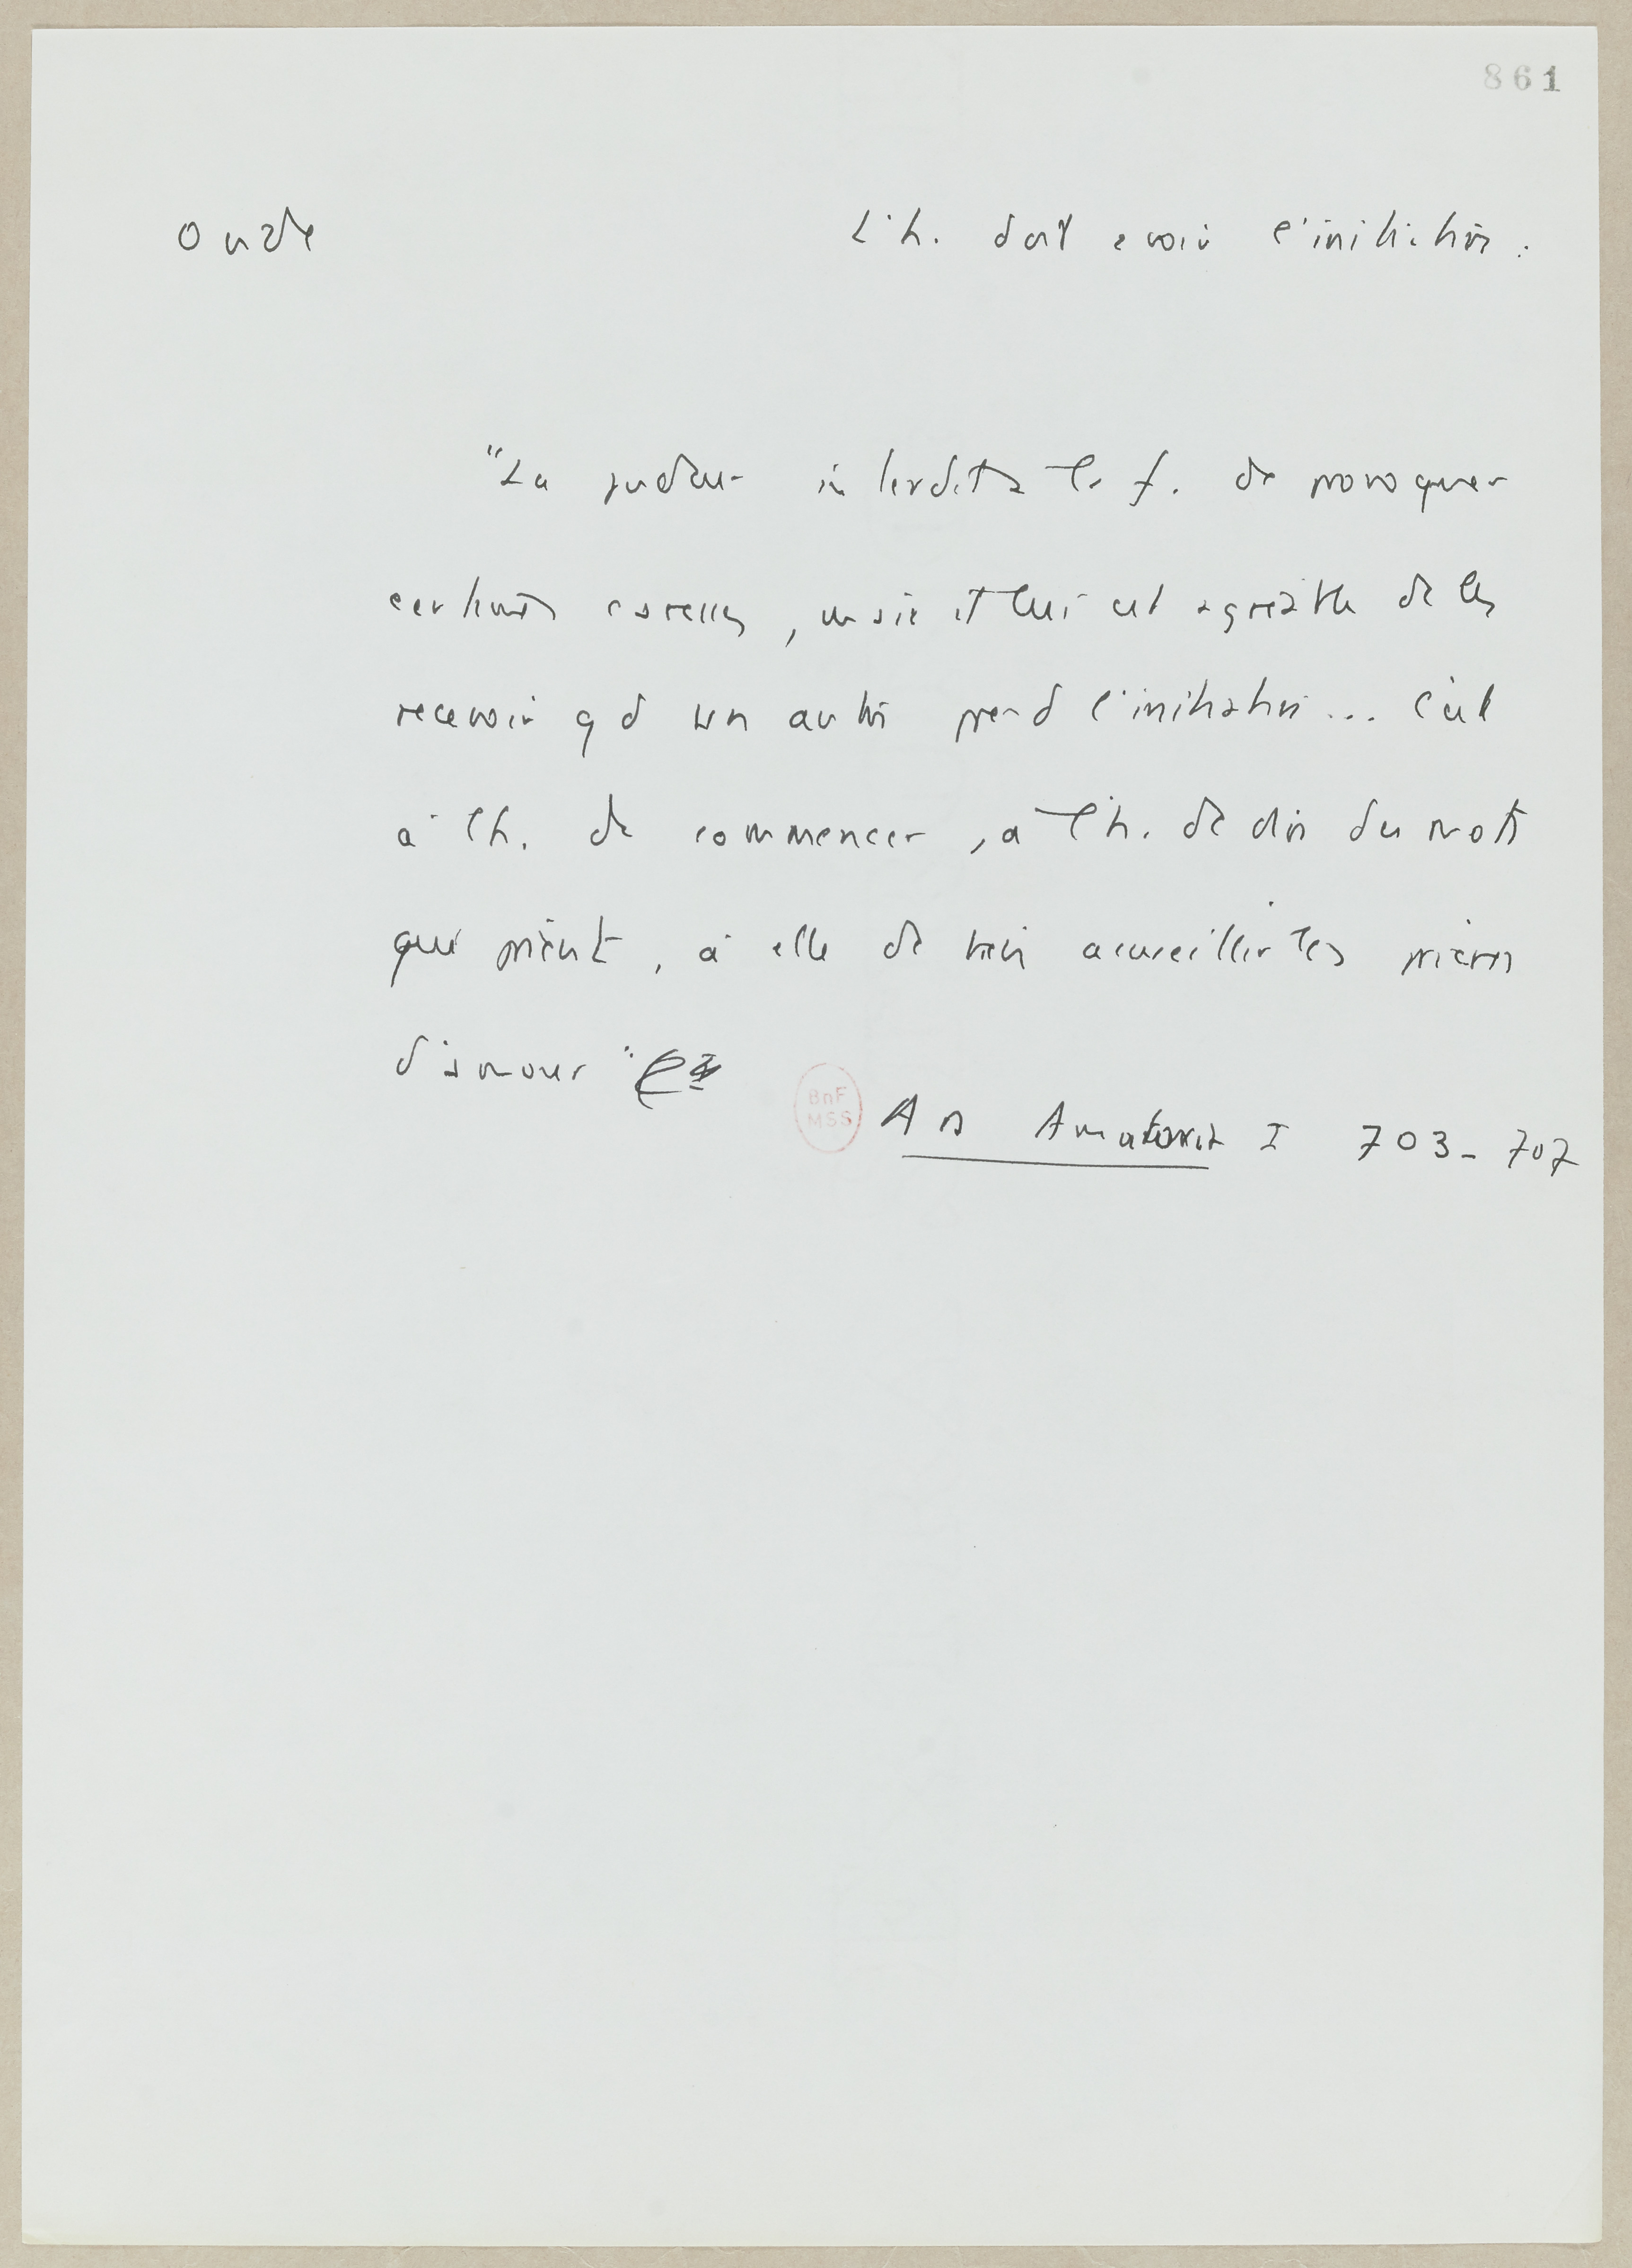 861
Ovide
L'h. doit avoir l'initiative :
"La pudeur interdit à la f. de provoquer
certaines caresses, mais il lui est agréable de les
recevoir qd un autre prend l'initiative... C'est
à l'h. de commencer, à l'h. de dire des mots
qui prient, à elle de bien accueillir les prières
d'amour"
BnF
MSS
Ars Amatoria I 703-707